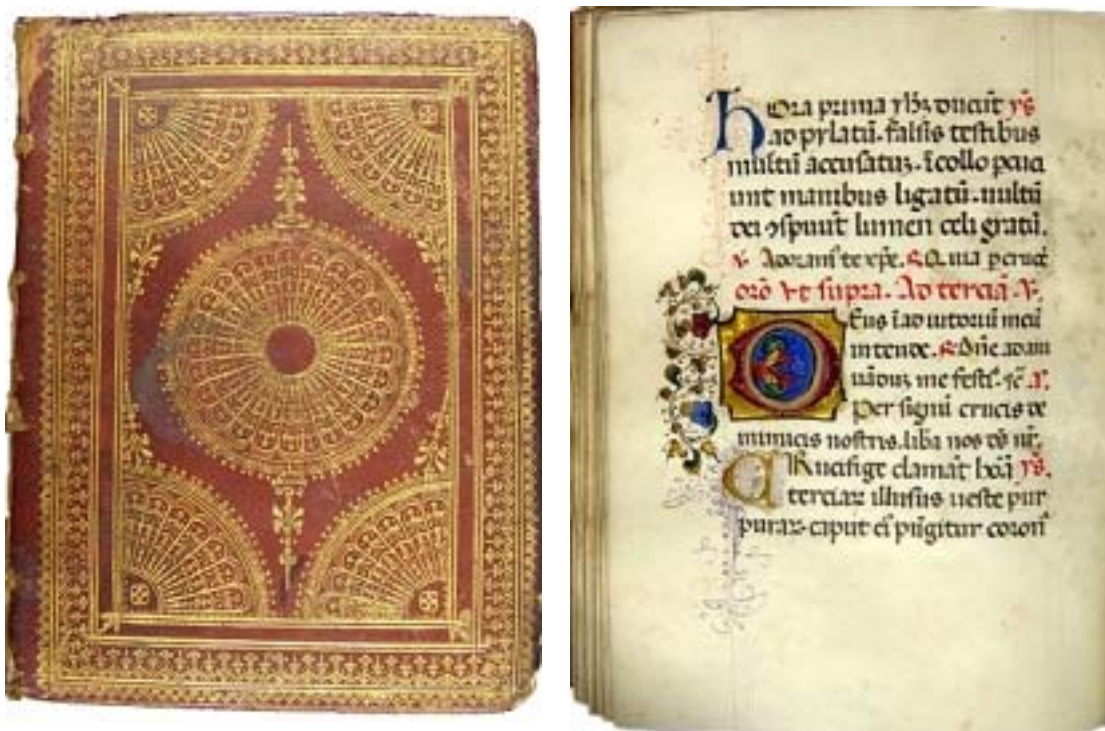 hOra prima yhz ducūt ys
ad pylatū. falsis testibus
multū accusatuz. ī collo percu
unt manibus ligatū. uultū
dei ɔspuūt lumen celi gratū.
v. Adoram' te xpe. R. Quia
orō vt supra. Ad terciā. v.
DEus ī adiutoriū meū
intende. R. Dñe
uāduz me festi.
Per signū crucis de
inimicis nostris. liba nos
CRucifige clamāt horā ys.
terciaz illusus ueste pur
puraz. caput ei' pūgitur coron'